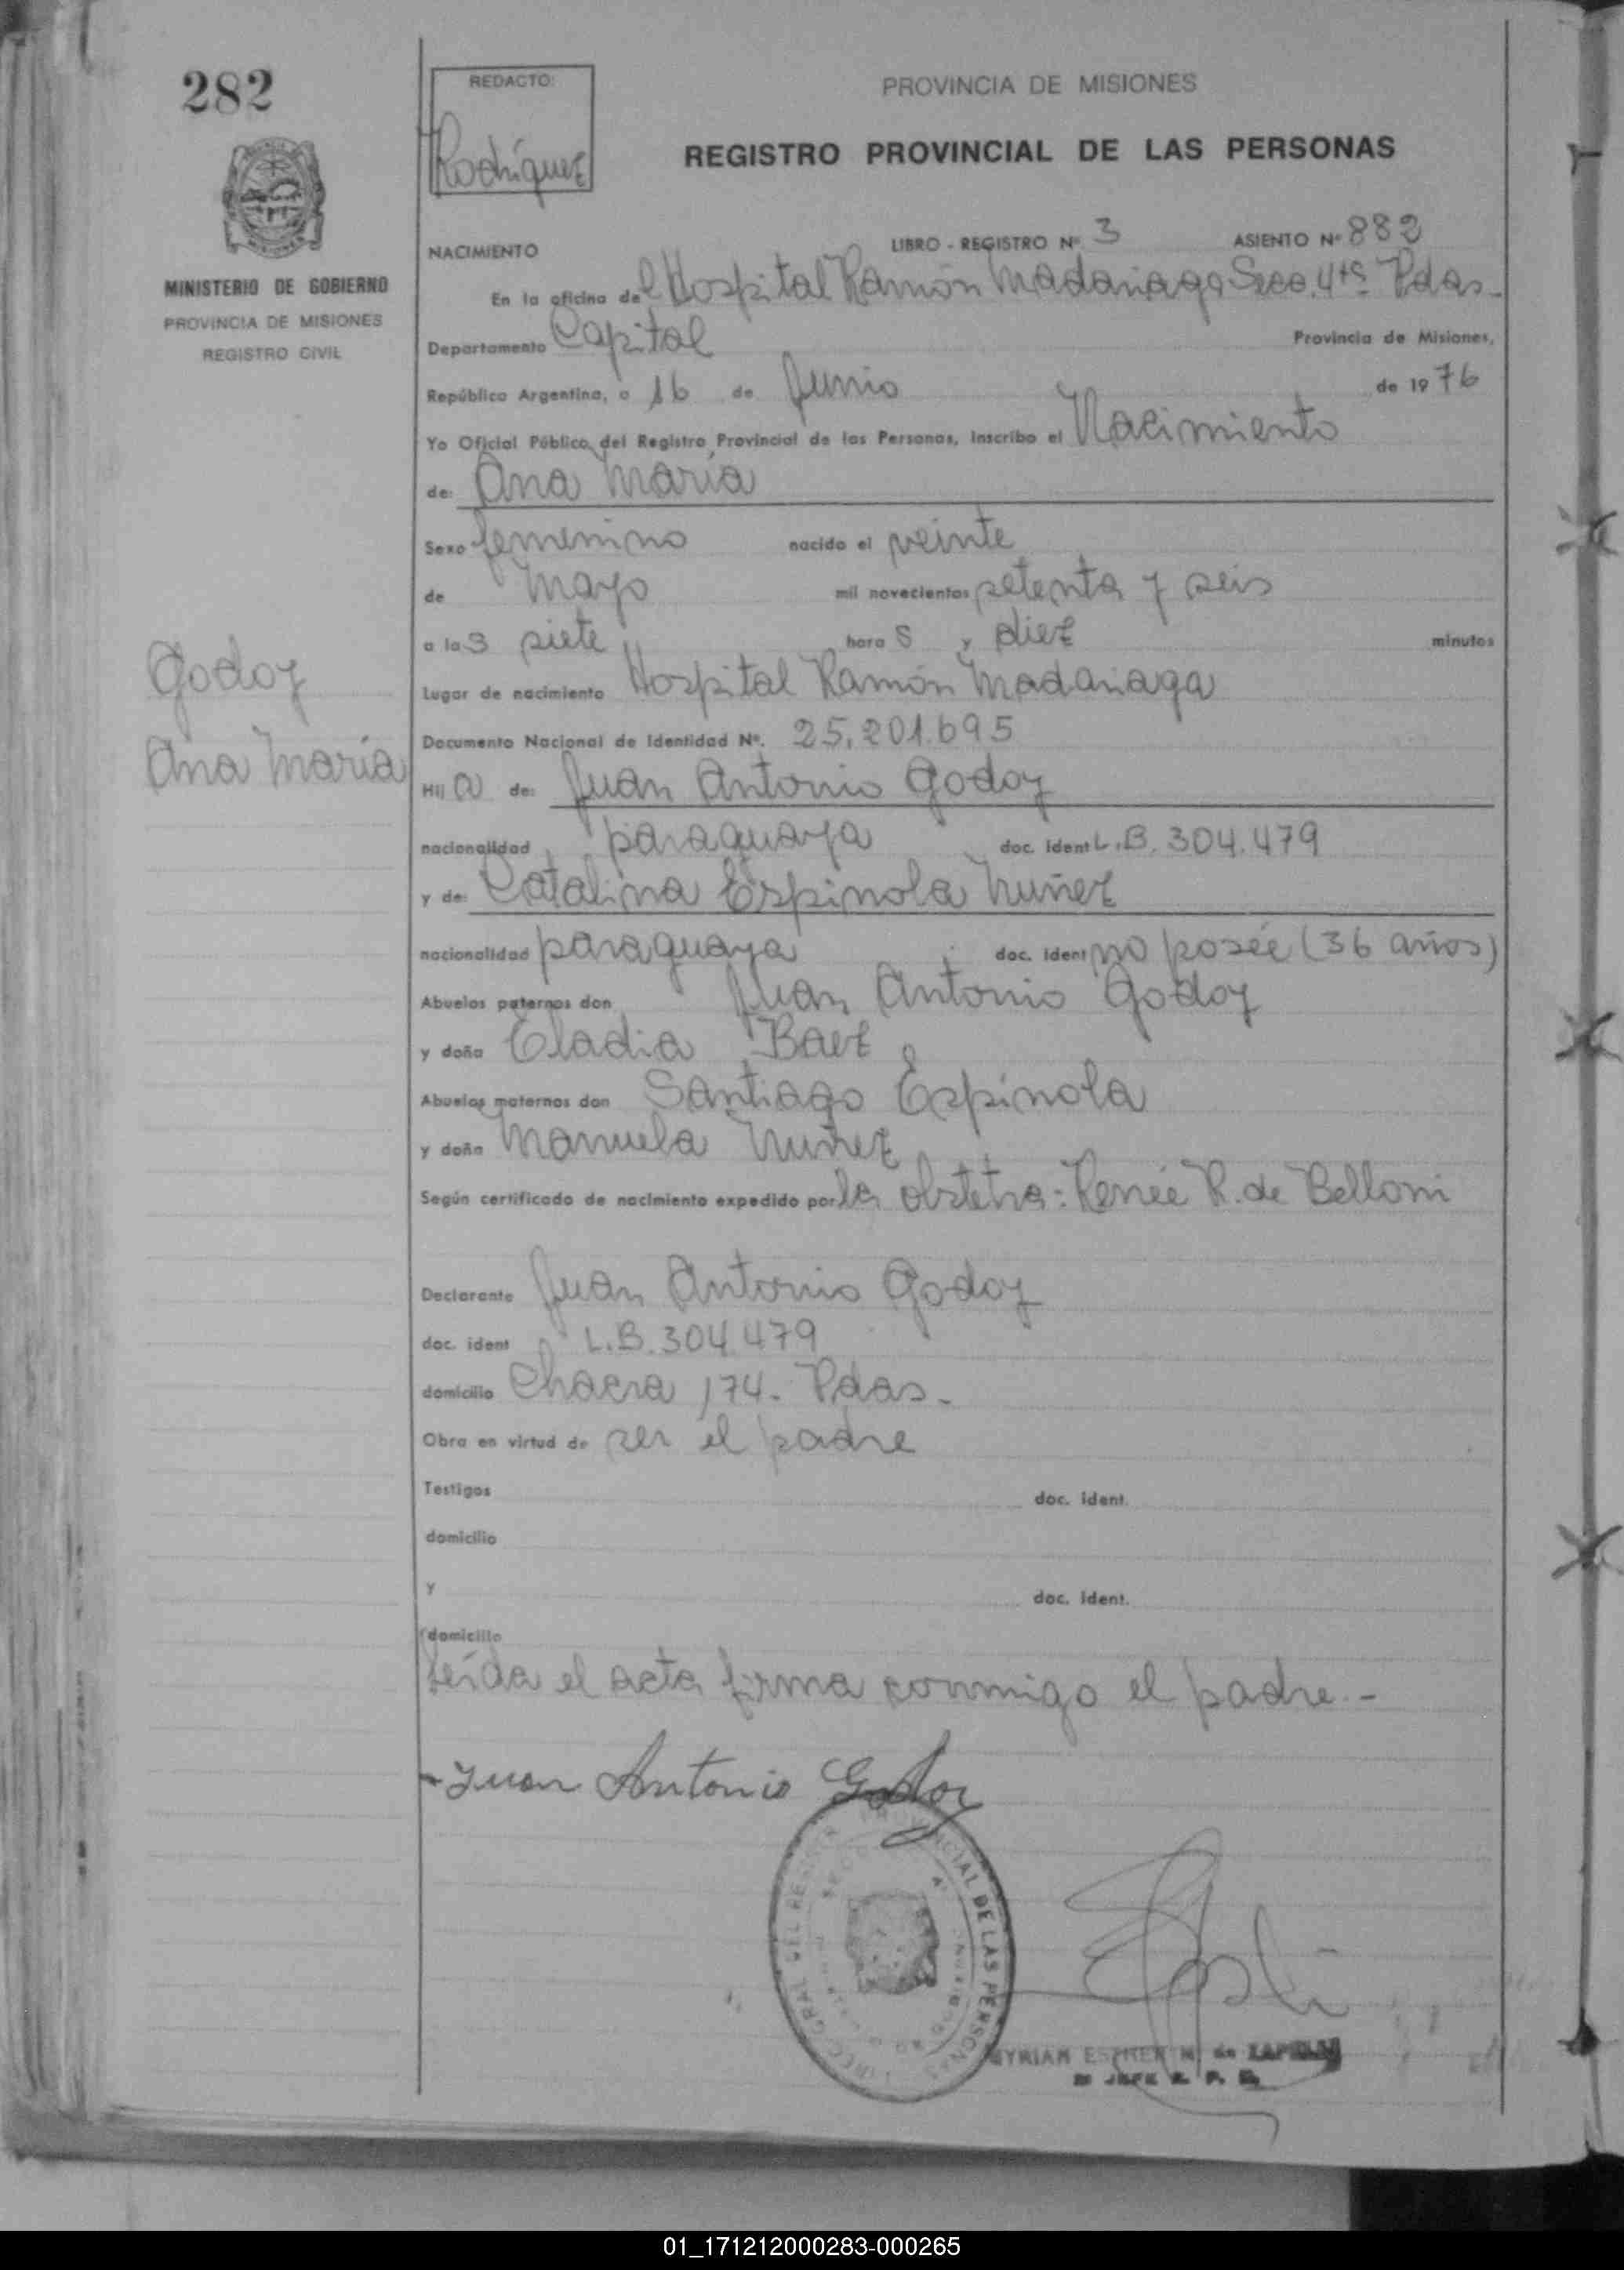 282
REDACTO:
Rodríguez
PROVINCIA DE MISIONES
REGISTRO PROVINCIAL DE LAS PERSONAS
MINISTERIO DE GOBIERNO
PROVINCIA DE MISIONES
REGISTRO CIVIL
NACIMIENTO LIBRO - REGISTRO Nº. 3 ASIENTO Nº 882
En la oficina del Hospital Ramón Madariaga Secc. 4ta Pdas.
Departamento Capital Provincia de Misiones,
República Argentina, a 16 de Junio de 1976
Yo Oficial Público del Registro Provincial de las Personas, Inscribo el Nacimiento
de: Ana María
Sexo femenino nacido el veinte
de mayo mil novecientos setenta y seis
a las siete horas y diez minutos
Godoy
Ana María
Lugar de nacimiento Hospital Ramón Madariaga
Documento Nacional de Identidad Nº. 25.201.695
Hija de: Juan Antonio Godoy
nacionalidad paraguaya doc. ident L.B. 304.479
y de: Catalina Espinola Nuñez
nacionalidad paraguaya doc. ident no posée (36 años)
Abuelos paternos don Juan Antonio Godoy
y doña Eladia Baez
Abuelos maternos don Santiago Espinola
y doña Manuela Nuñez
Según certificado de nacimiento expedido por la obstetra: Renée R. de Belloni
Declarante Juan Antonio Godoy
doc. ident L.B. 304.479
domicilio Chacra 174. Pdas.
Obra en virtud de ser el padre
Testigos doc. ident.
domicilio
y doc. ident.
domicilio
Leída el acta firma conmigo el padre.-
- Juan Antonio Godoy
DE LAS PERSONAS
MYRIAM ESTHER M. de
JEFE R. P.
01_171212000283-000265